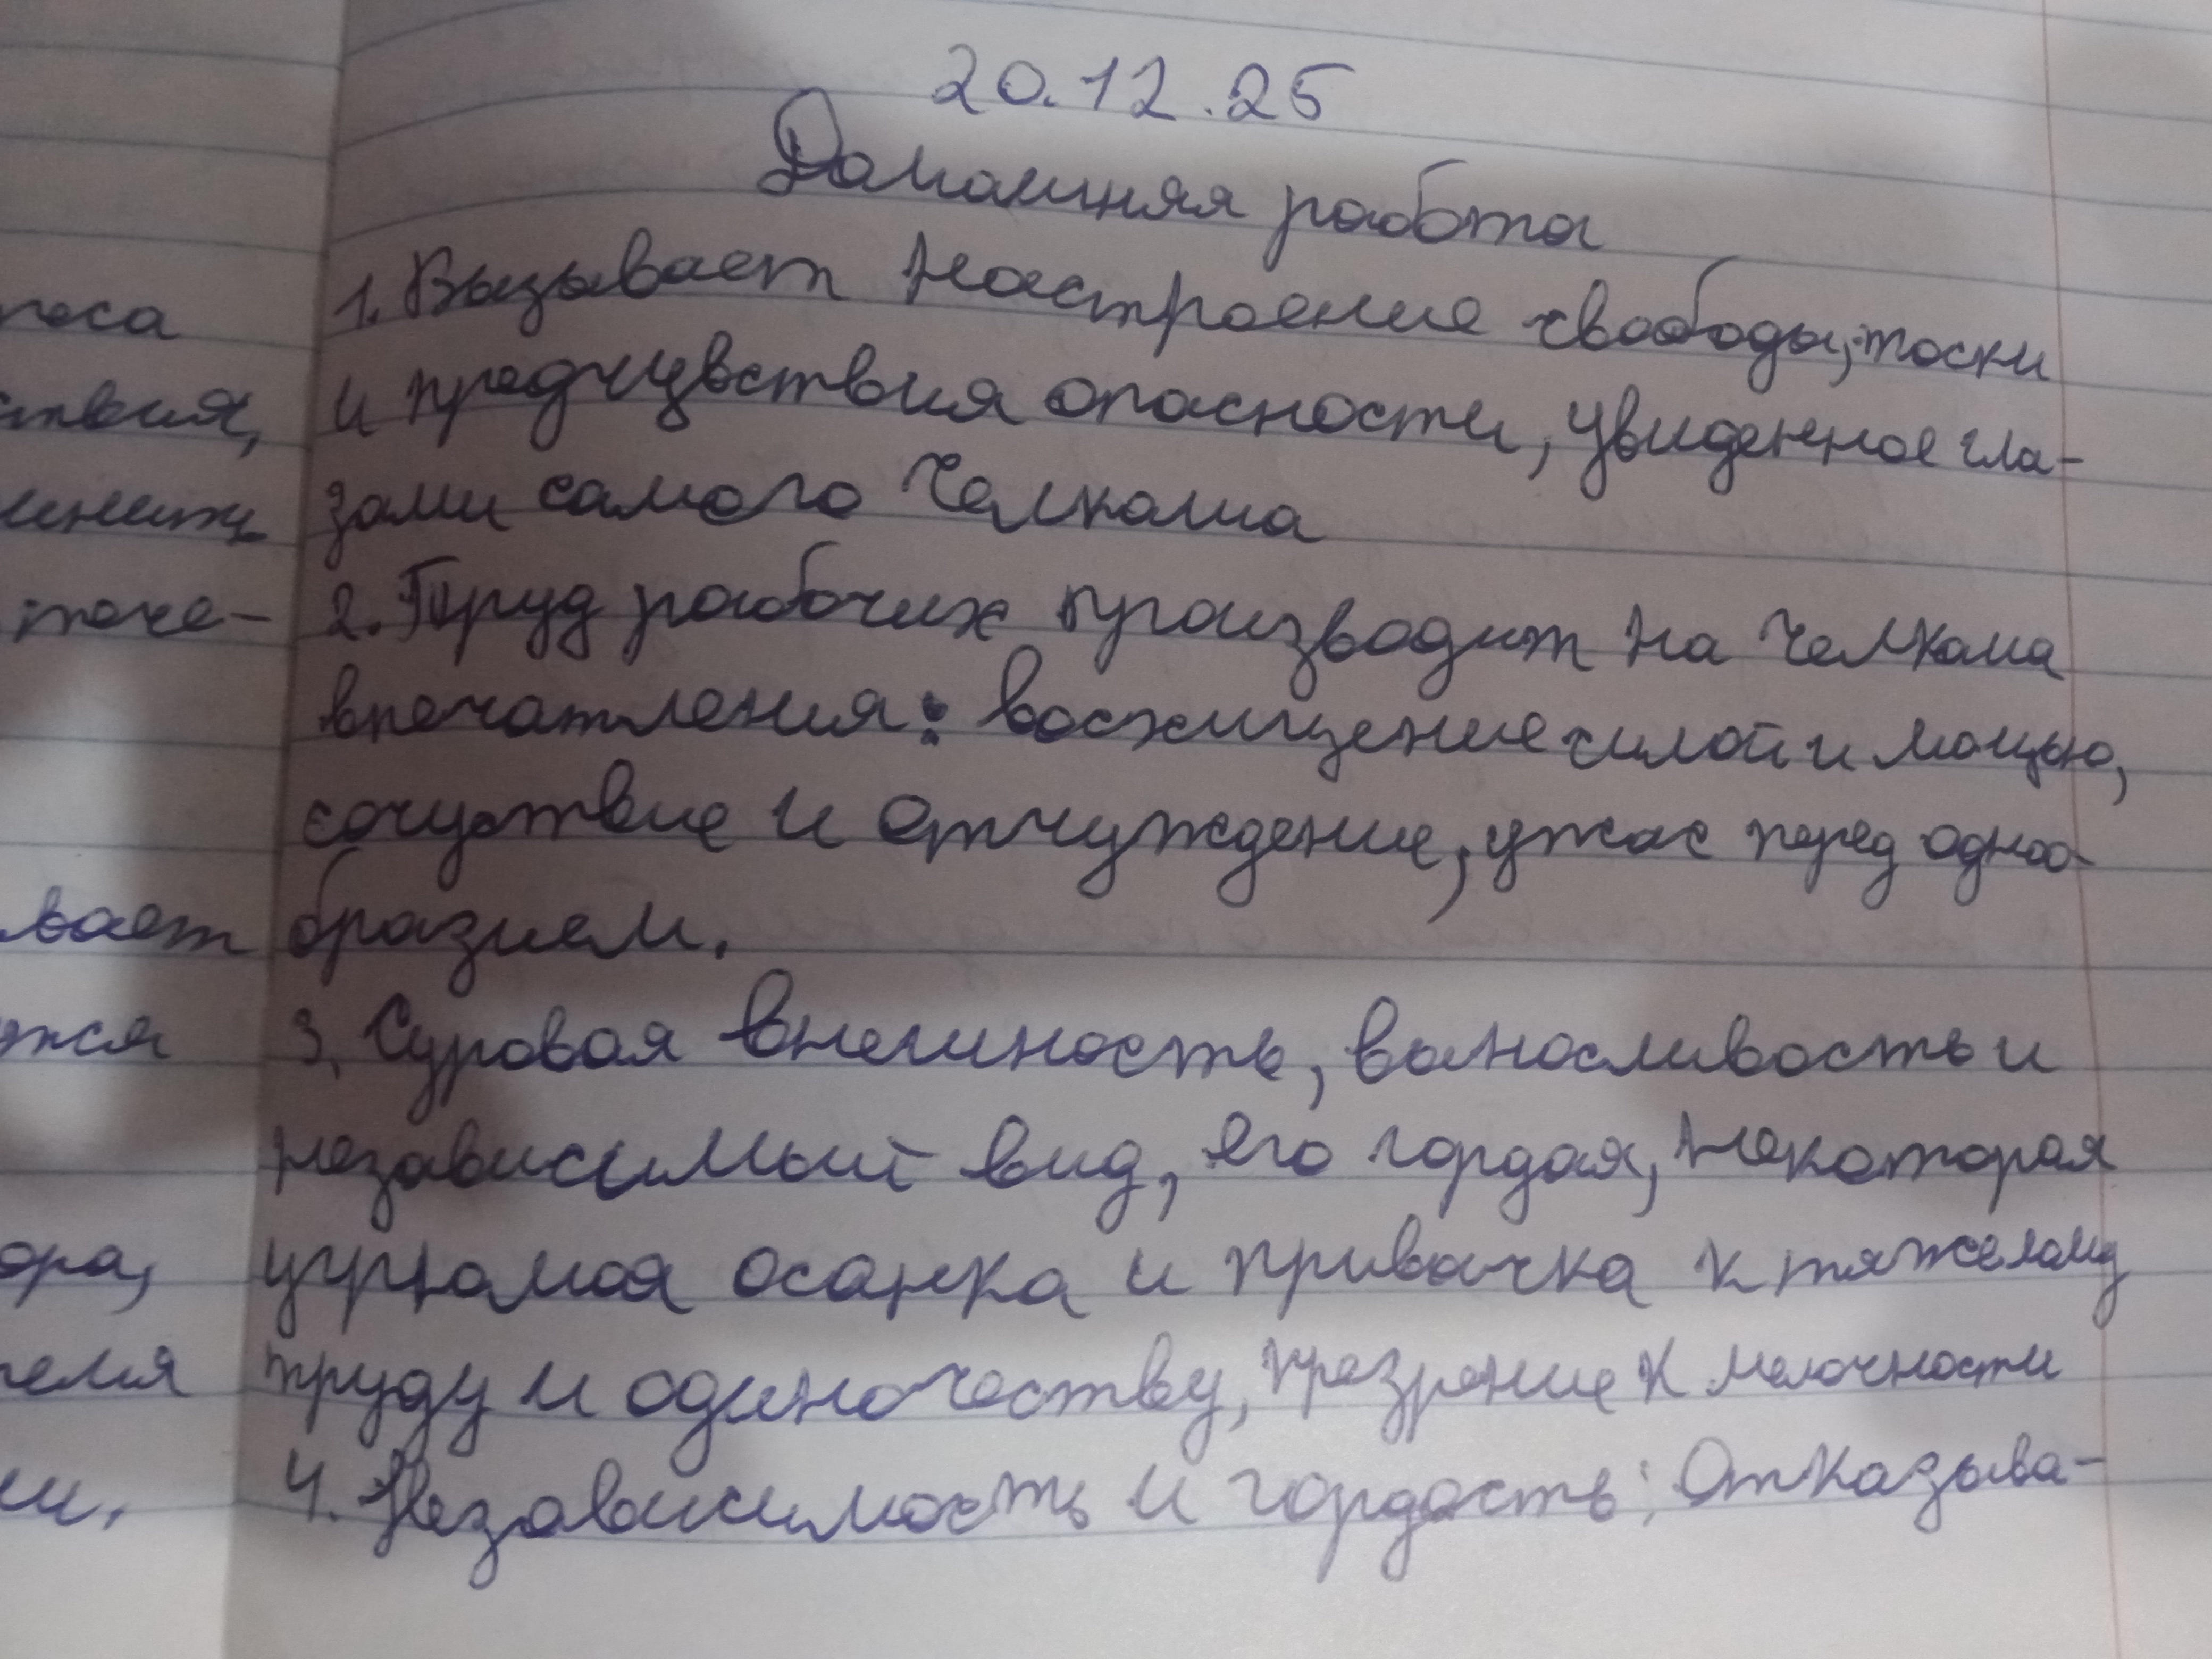 20.12.25
Домашняя работа
1. Вызывает настроение свободы, тоски
и предчувствия опасности, увиденное гла-
зами самого Челкаша
2. Труд рабочих производит на Челкаша
впечатления: восхищение силой и мощью,
сочуствие и отчуждение, ужас перед одноо-
бразием.
3. Суровая внешность, выносливость и
независимый вид, его гордая, некоторая
угрюмая осанка и привычка к тяжелому
труду и одиночеству, презрение к мелочности
4. Независимость и гордость: Отказыва-
ствия,
тече-
вает
ора,